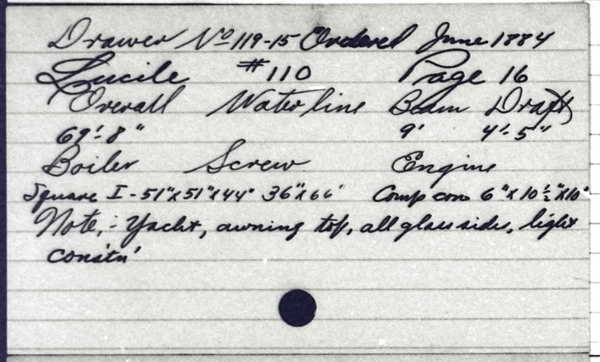 Drawer No 119-15 Ordered June 1884
Lucile #110 Page 16
Overall Water line Beam Draft
69'-8" 9' 4'-5"
Boiler Screw Engine
Square I-51"x51"x44" 36"x66" Comp con 6"x10½"x10"
Note,- Yacht, awning top, all glass side, light
constn'